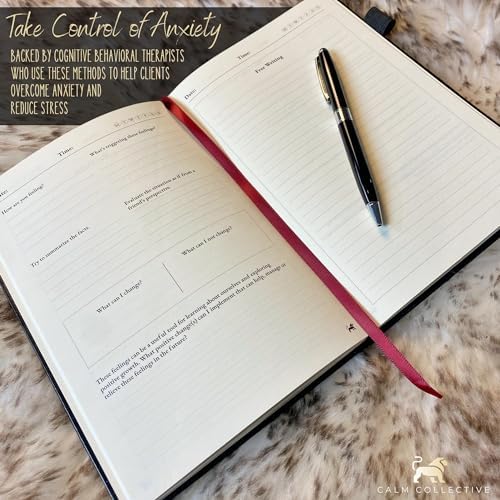 Take Control of Anxiety
BACKED BY COGNITIVE BEHAVIORAL THERAPISTS
WHO USE THESE METHODS TO HELP CLIENTS
OVERCOME ANXIETY AND
REDUCE STRESS
Time:
What's triggering these feelings?
How are you feeling?
Evaluate the situation as if from a
friend's perspective.
Try to summarize the facts.
What can I change?
What can I not change?
These feelings can be a useful tool for learning about ourselves and exploring
positive growth. What positive change(s) can I implement that can help, manage or
relieve these feelings in the future?
Date:
Time:
Free Writing
CALM COLLECTIVE